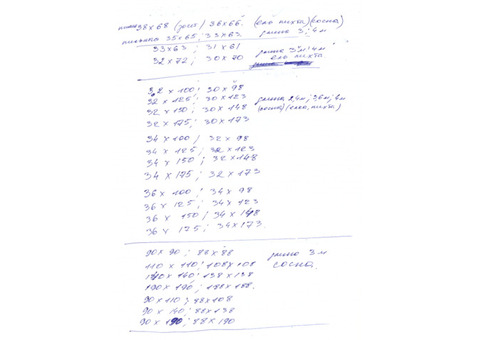 38×68 (росс) 36×66 (ель пихта) (сосна)
35×65; 33×63 длина 3; 4м
33×63; 31×61 длина 3м 4м
32×72; 30×70 ель пихта
32×100; 30×98
32×125; 30×123 длина 2,4м; 3,6м; 4м
32×150; 30×148 (ель, пихта)
32×175; 30×173
34×100; 32×98
34×125; 32×123
34×150; 32×148
34×175; 32×173
36×100; 34×98
36×125; 34×123
36×150; 34×148
36×175; 34×173
90×90; 88×88 длина 3м
110×110; 108×108 сосна
140×140; 138×138
190×190; 188×188.
90×110; 88×108
90×140; 88×138
90×190; 88×190